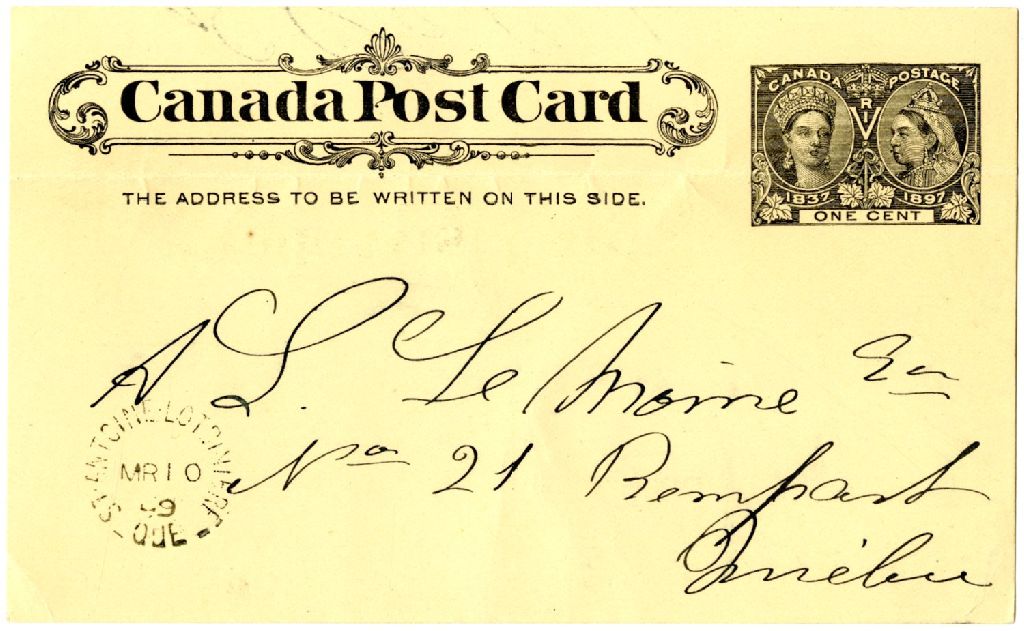 Canada Post Card
THE ADDRESS TO BE WRITTEN ON THIS SIDE.
CANADA POSTAGE
V R I
1837 1897
ONE CENT
A L. Le Moine Esq
No 21 Rempart
Québec
ST ANTOINE-LOTBINIERE
MR 10
99
QUE